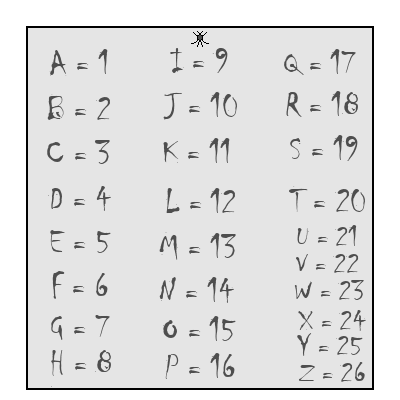 A = 1
B = 2
C = 3
D = 4
E = 5
F = 6
G = 7
H = 8
I = 9
J = 10
K = 11
L = 12
M = 13
N = 14
O = 15
P = 16
Q = 17
R = 18
S = 19
T = 20
U = 21
V = 22
W = 23
X = 24
Y = 25
Z = 26